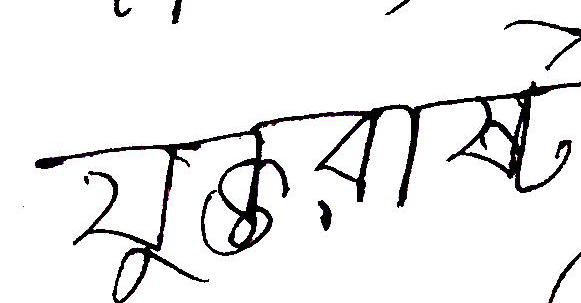 যুক্তরাষ্ট